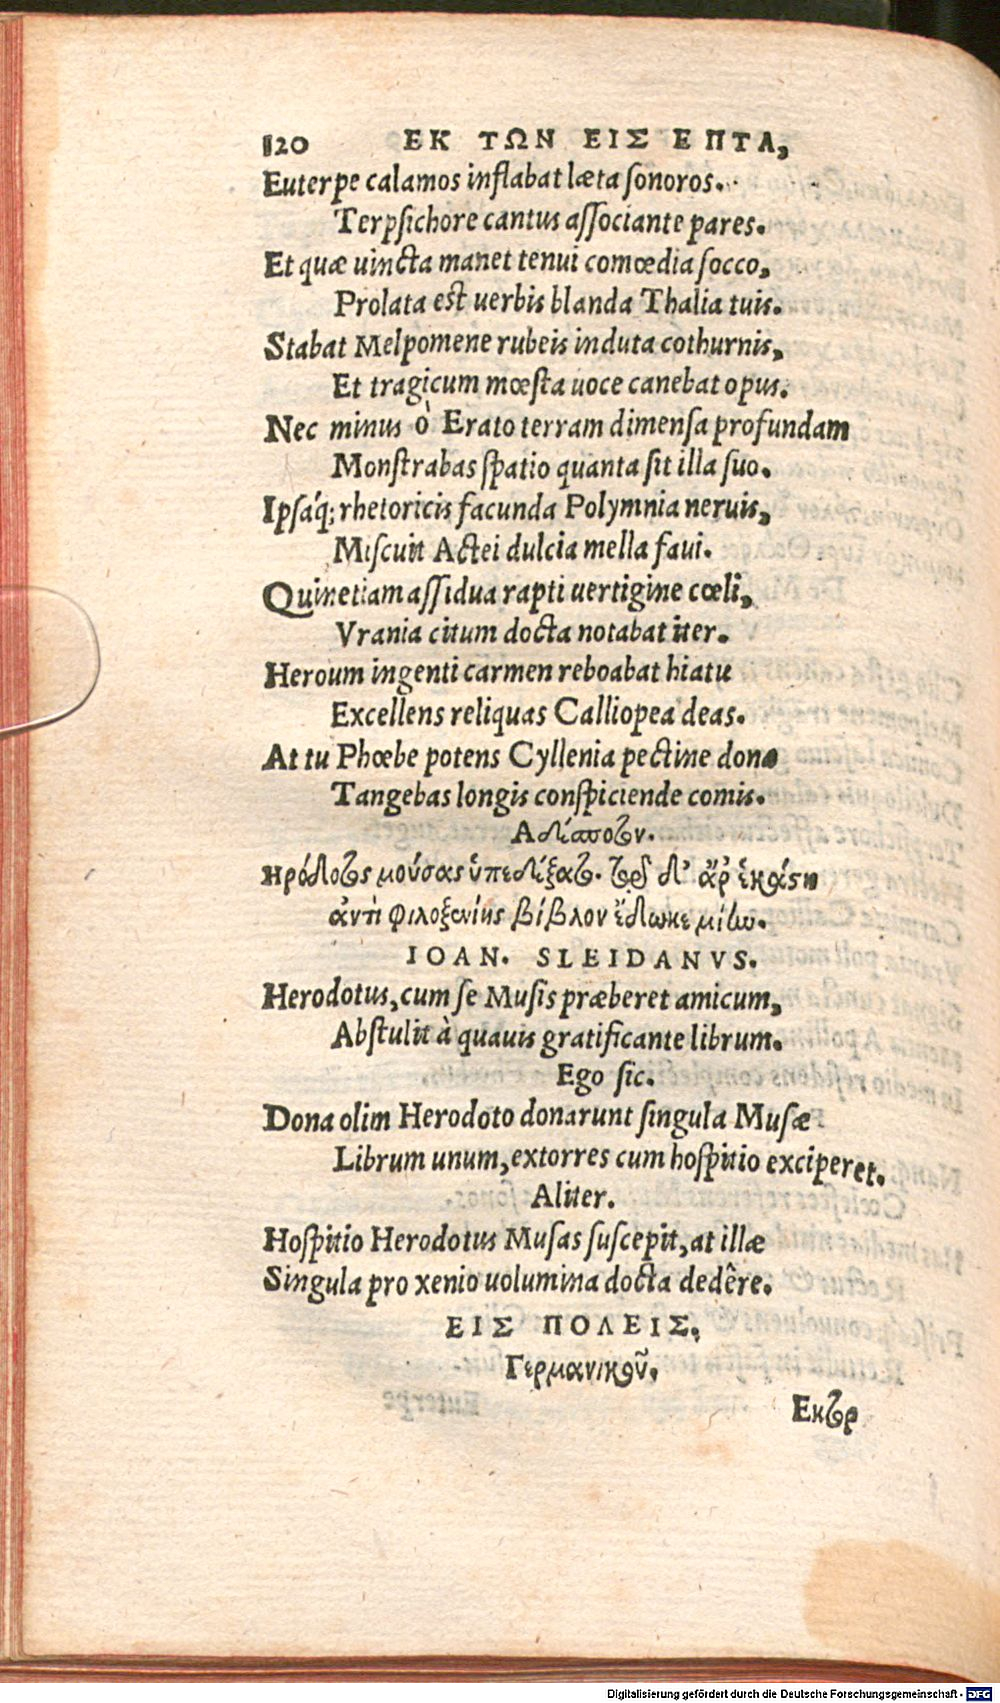 120 ΕΚ ΤΩΝ ΕΙΣ ΕΠΤΑ,
Euterpe calamos inflabat læta sonoros.
Terpsichore cantus associante pares.
Et quæ uincta manet tenui comœdia socco,
Prolata est uerbis blanda Thalia tuis.
Stabat Melpomene rubeis induta cothurnis,
Et tragicum mœsta uoce canebat opus.
Nec minus ὁ Erato terram dimensa profundam
Monstrabas spatio quanta sit illa suo.
Ipsáq; rhetoricis facunda Polymnia neruis,
Miscuit Actei dulcia mella faui.
Quinetiam assidua rapti uertigine cœli,
Vrania citum docta notabat iter.
Heroum ingenti carmen reboabat hiatu
Excellens reliquas Calliopea deas.
At tu Phœbe potens Cyllenia pectine dona
Tangebas longis conspiciende comis.
Αδέσποτον.
Ηρόδοτος μούσας ὑπεδέξατο. τῷ δ' ἄρ' ἑκάστη
ἀντὶ φιλοξενίης βίβλον ἔδωκε μίαν.
IOAN. SLEIDANVS.
Herodotus, cum se Musis præberet amicum,
Abstulit à quauis gratificante librum.
Ego sic.
Dona olim Herodoto donarunt singula Musæ
Librum unum, extorres cum hospitio exciperet.
Aliter.
Hospitio Herodotus Musas suscepit, at illæ
Singula pro xenio uolumina docta dedêre.
ΕΙΣ ΠΟΛΕΙΣ.
Γερμανικοῦ.
Εκτορ
Digitalisierung gefördert durch die Deutsche Forschungsgemeinschaft - DFG